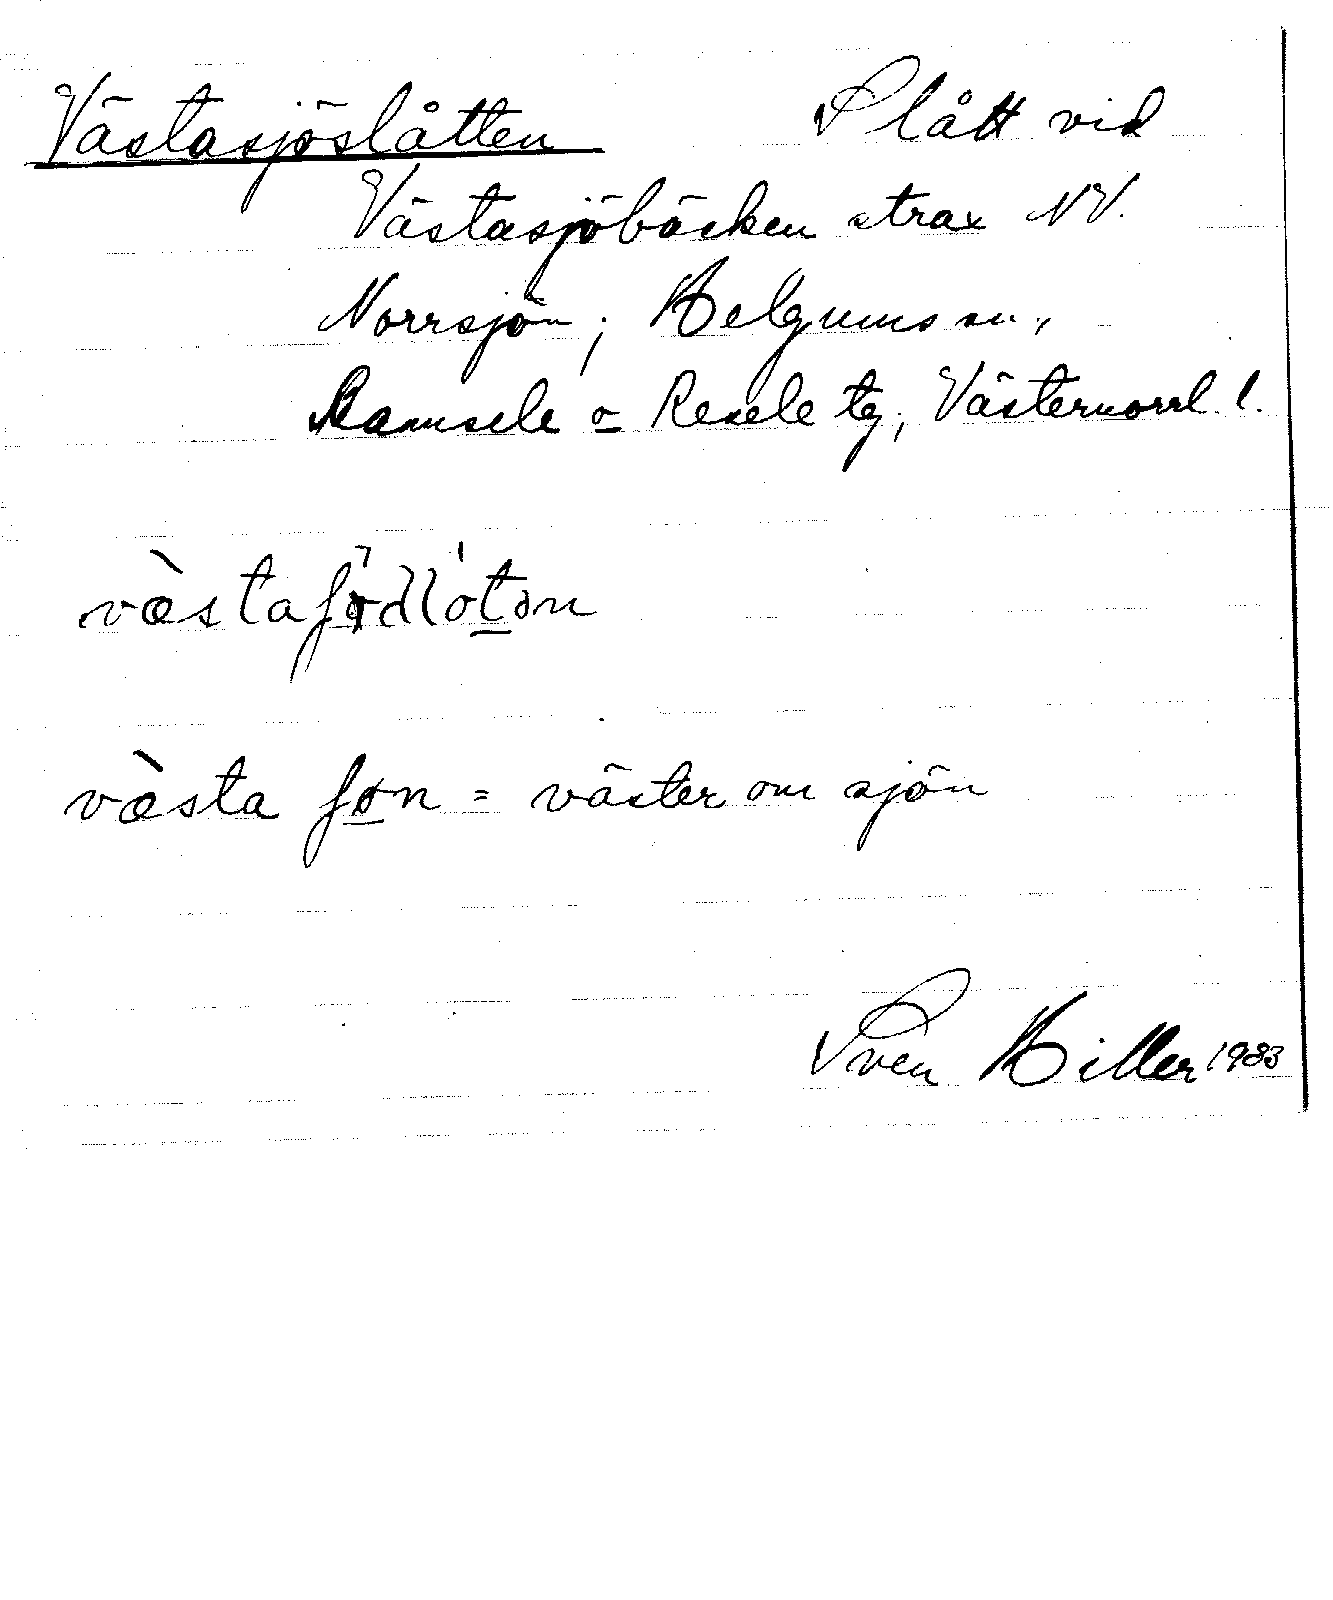 Västasjöslåtten Slått vid
Västasjöbäcken strax NV.
Norrsjön; Helgums sn.,
Ramsele o Resele tg, Västernorrl. l.
væsta
væsta ʃøn = väster om sjön
Sven Hiller 1983